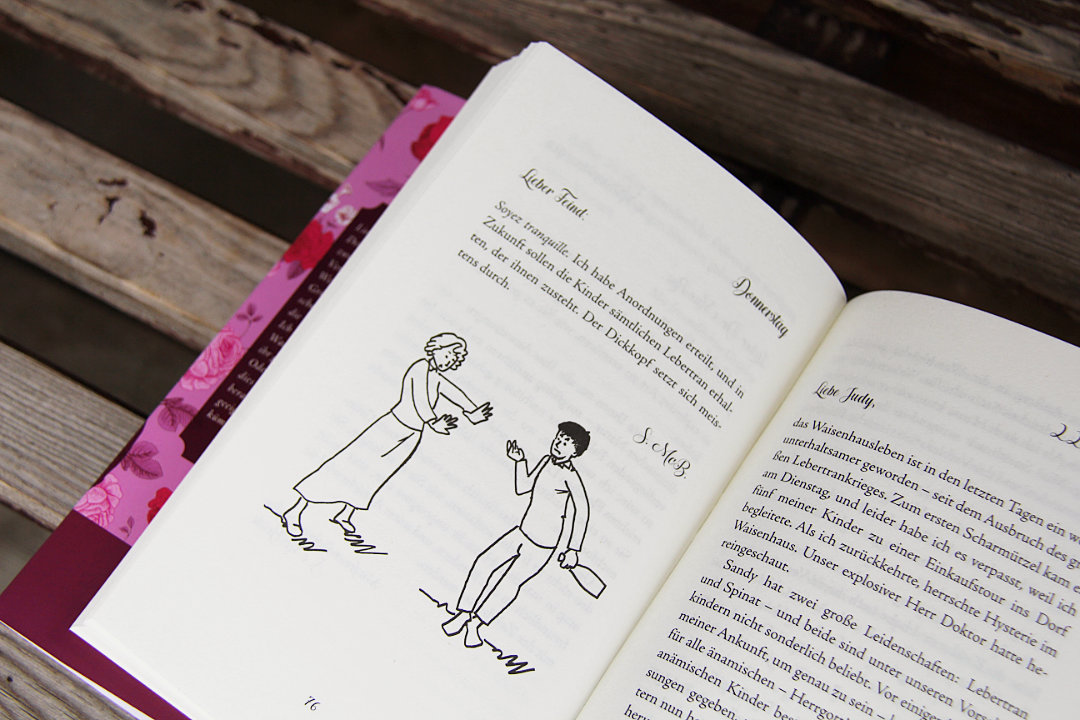 Donnerstag
Lieber Feind:
Soyez tranquille. Ich habe Anordnungen erteilt, und in
Zukunft sollen die Kinder sämtlichen Lebertran erhal-
ten, der ihnen zusteht. Der Dickkopf setzt sich meis-
tens durch.
S. McB.
76
Liebe Judy,
das Waisenhausleben ist in den letzten Tagen ein
unterhaltsamer geworden – seit dem Ausbruch des
ßen Lebertrankrieges. Zum ersten Scharmützel kam
am Dienstag, und leider habe ich es verpasst, weil ich
fünf meiner Kinder zu einer Einkaufstour ins Dorf
begleitete. Als ich zurückkehrte, herrschte Hysterie im
Waisenhaus. Unser explosiver Herr Doktor hatte he-
reingeschaut.
Sandy hat zwei große Leidenschaften: Lebertran
und Spinat – und beide sind unter unseren
kindern nicht sonderlich beliebt. Vor
meiner Ankunft, um genau zu sein –
für alle änamischen – Herrgott
anämischen Kinder
sungen gegeben,
tern nun